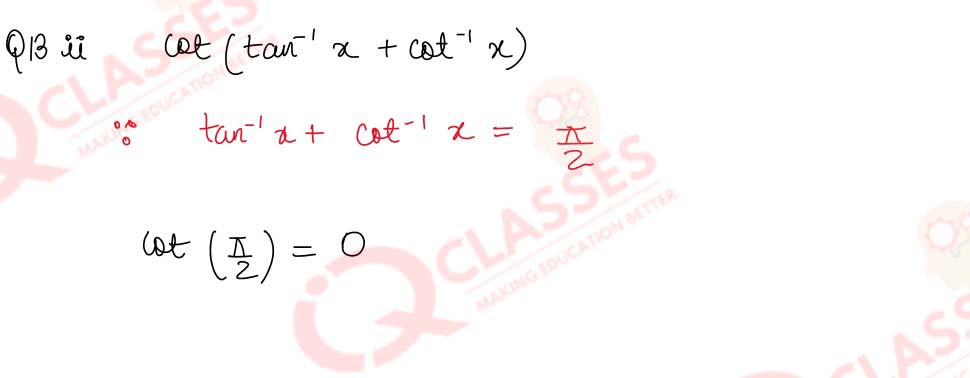 Q13 ii cot (tan⁻¹ x + cot⁻¹ x)
∵ tan⁻¹ x + cot⁻¹ x = π/2
cot (π/2) = 0
CLASSES
MAKING EDUCATION BETTER
CLASSES
MAKING EDUCATION BETTER
CLASS